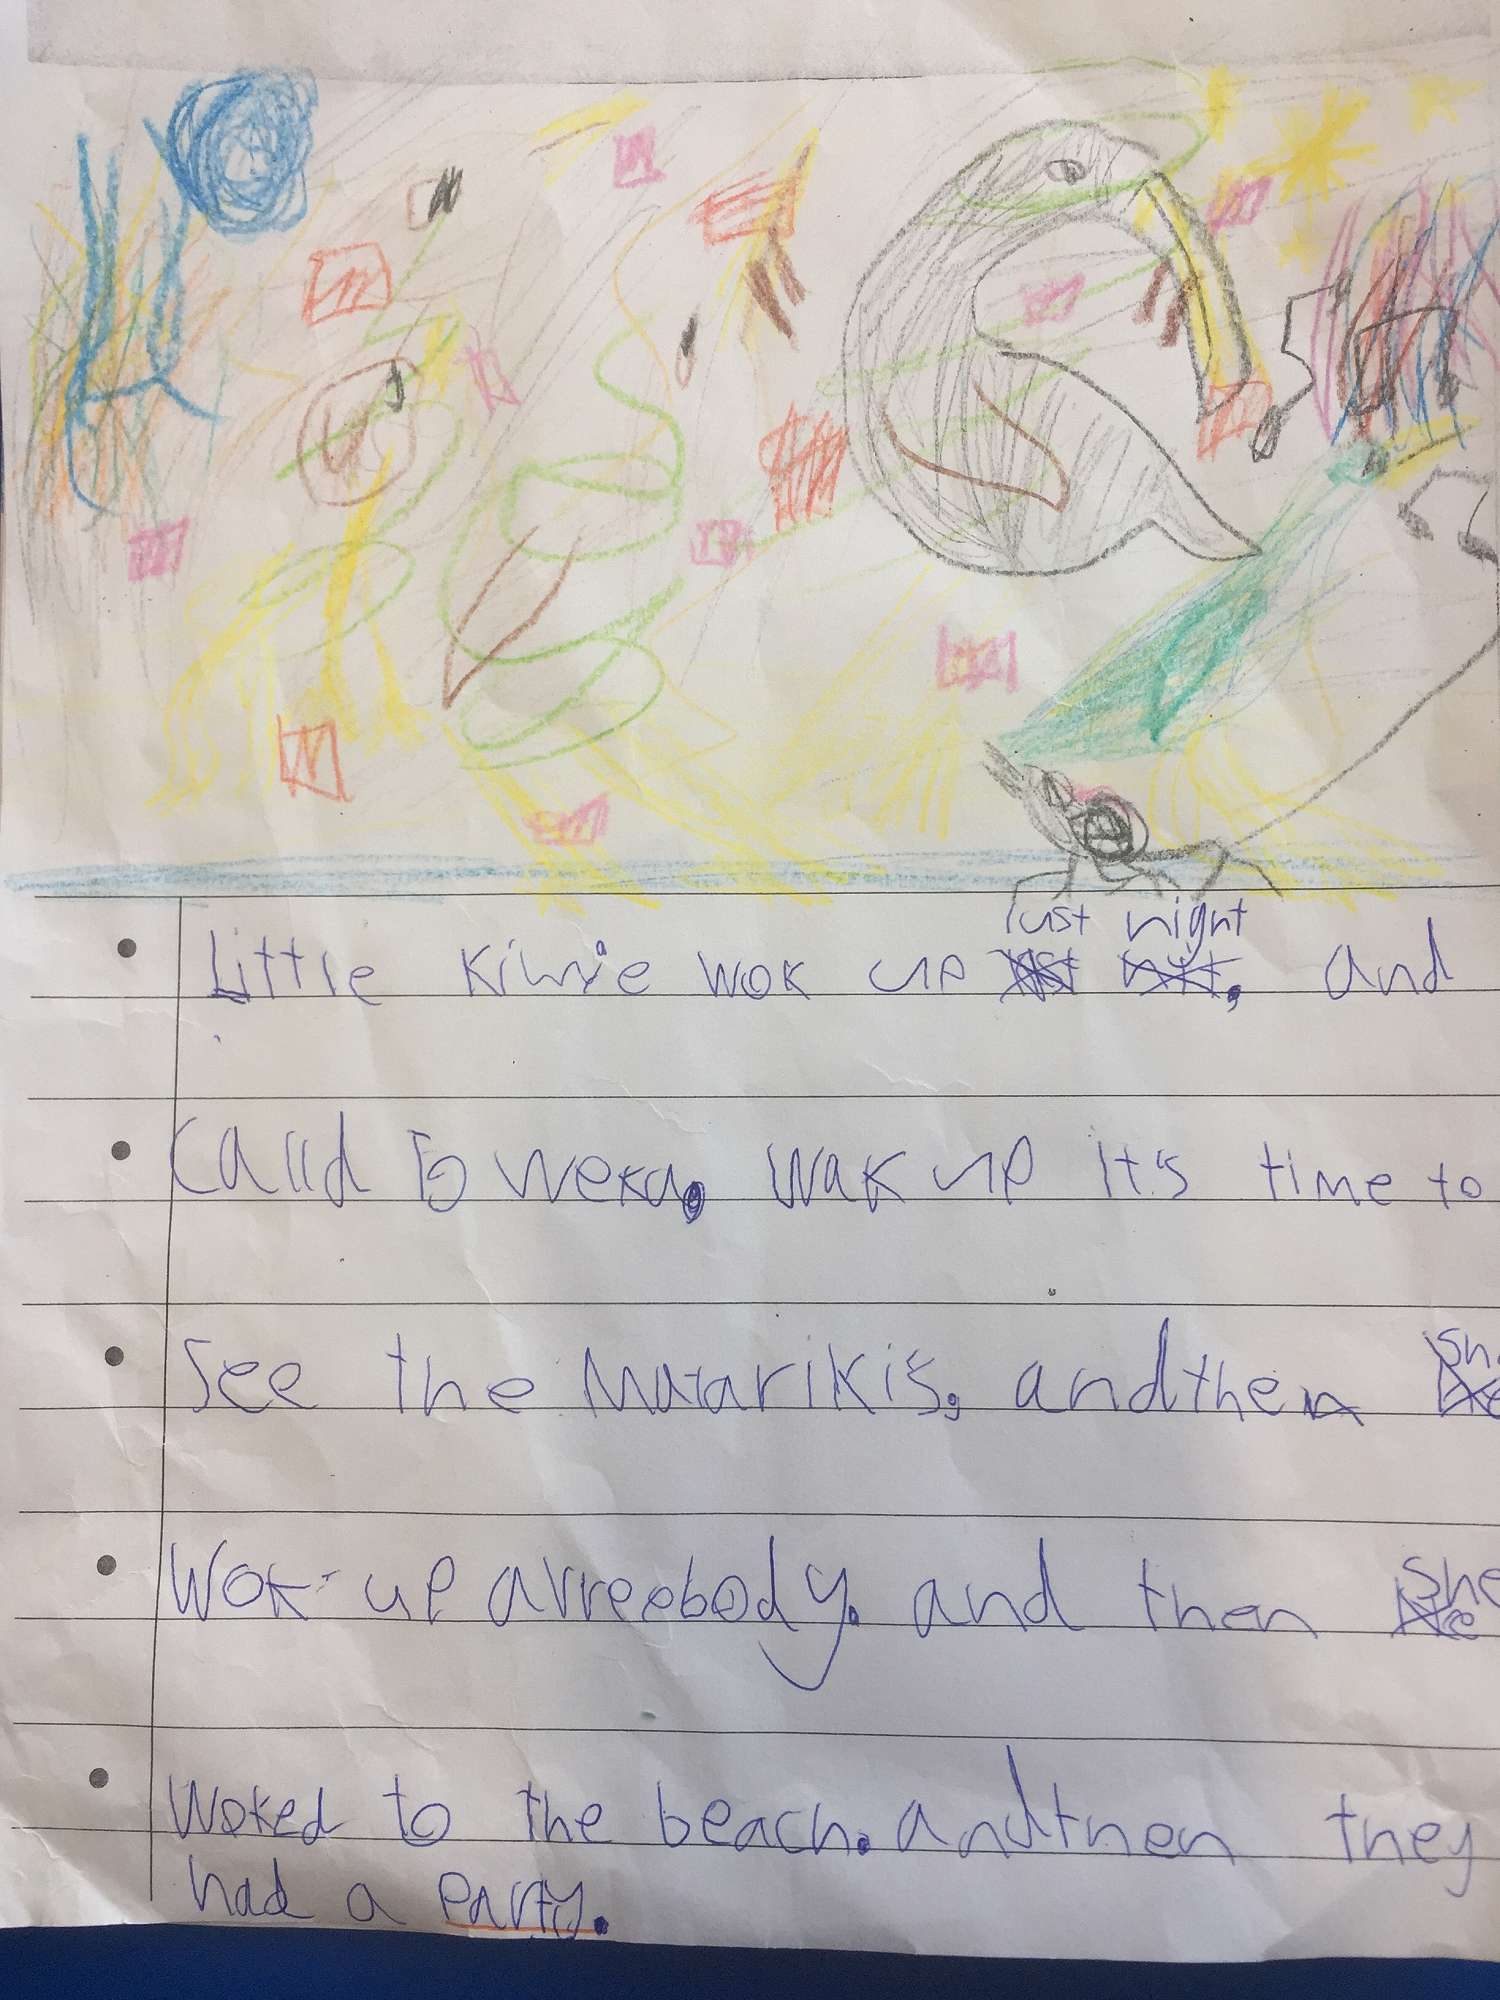 last night
Little kiwie wok up last nit. and
Calld to weka. wak up it's time to
See the Matarikis. and then she
Wok up avreebody. and then she
Woked to the beach. and then they
had a Party.